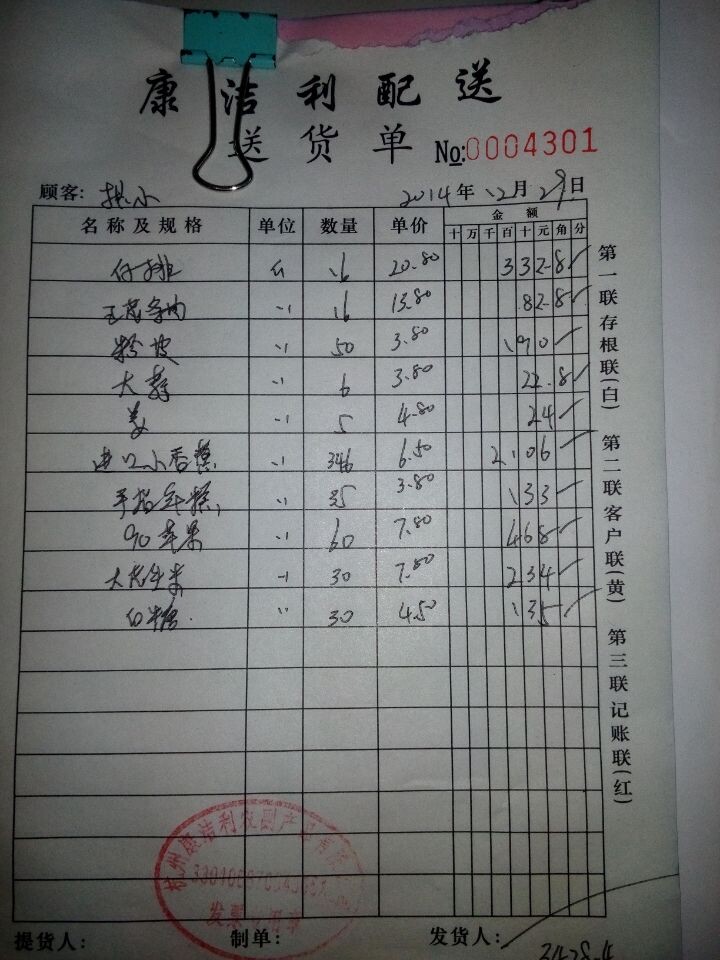 康洁利配送
送货单 No:0004301
顾客: 2014年12月29日
名称及规格 单位 数量 单价 金额
十 万 千 百 十 元 角 分
仔排 斤 16 20.80 332.8
16 13.80 82.8
粉皮 〃 50 3.80 190
大蒜 〃 6 3.80 22.8
姜 〃 5 4.80 24
进口小香蕉 〃 346 6.50 2106
〃 35 3.80 133
90苹果 〃 60 7.80 468
大花生米 〃 30 7.80 234
白糖 〃 30 4.50 135
第一联存根联(白)
第二联客户联(黄)
第三联记账联(红)
杭州康洁利农副产品有限
发票专用章
提货人: 制单: 发货人: